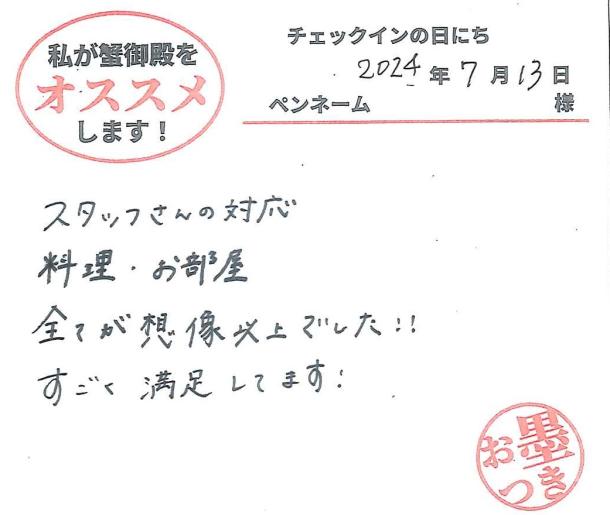 私が蟹御殿を
オススメ
します!
チェックインの日にち
2024年7月13日
ペンネーム 様
スタッフさんの対応
料理・お部屋
全てが想像以上でした!!
すごく満足してます!
お墨
つき